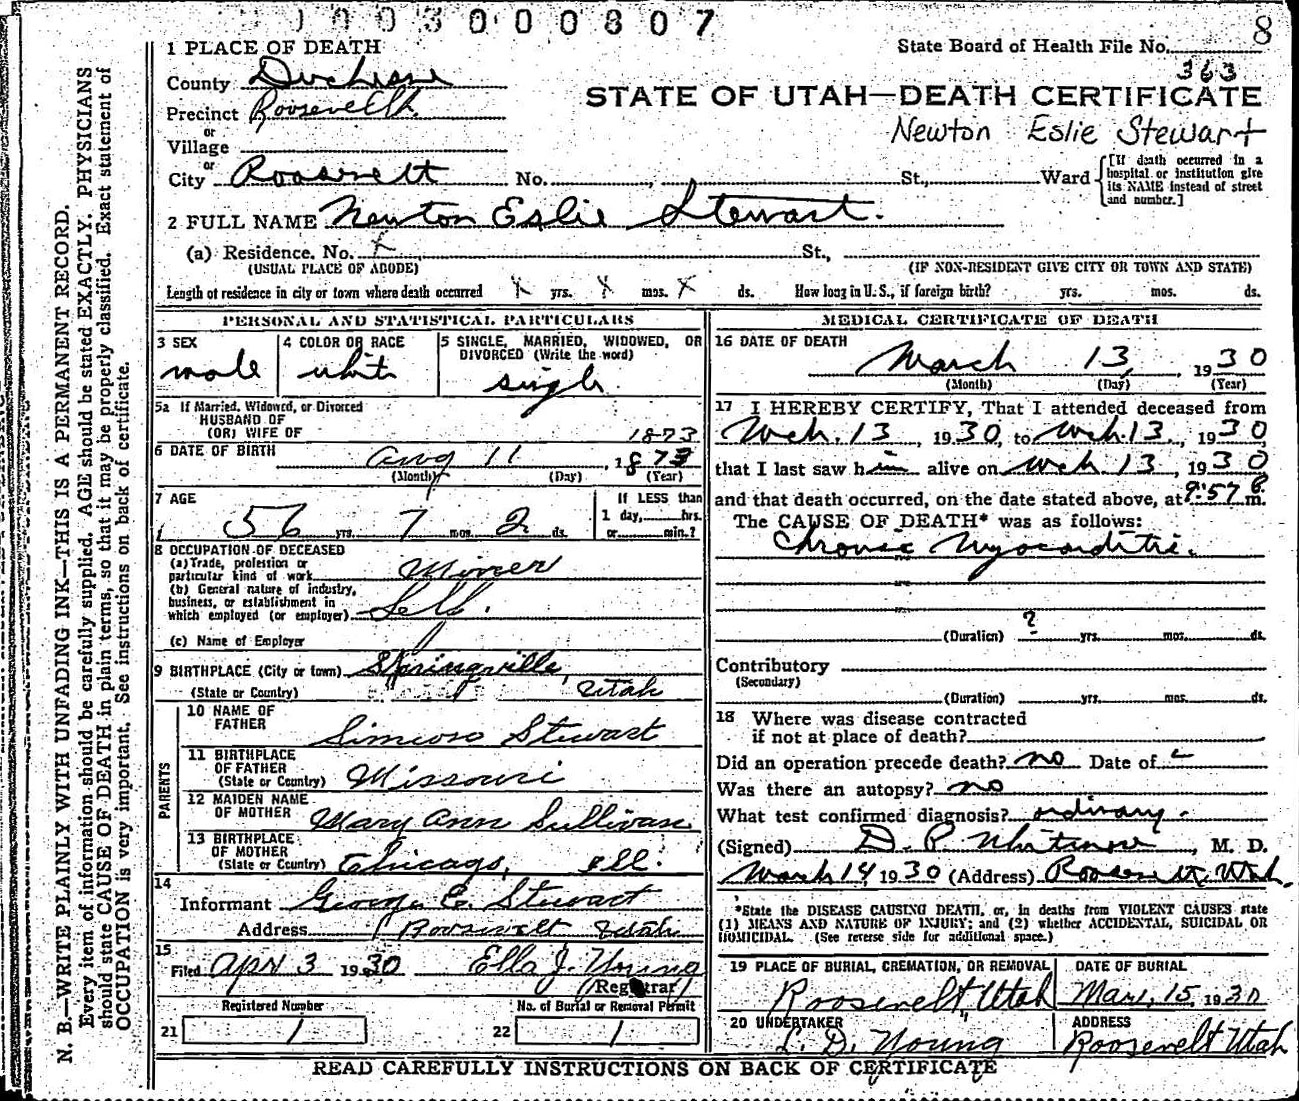 0003000807
8
1 PLACE OF DEATH
State Board of Health File No.
363
County Duchesne
STATE OF UTAH—DEATH CERTIFICATE
Precinct Roosevelt
Newton Eslie Stewart
or
Village
or
City Roosevelt No. , St., Ward
[If death occurred in a
hospital or institution give
its NAME instead of street
and number.]
2 FULL NAME Newton Eslie Stewart.
(a) Residence. No. x St.,
(USUAL PLACE OF ABODE) (IF NON-RESIDENT GIVE CITY OR TOWN AND STATE)
Length of residence in city or town where death occurred x yrs. x mos. x ds. How long in U.S., if foreign birth? yrs. mos. ds.
PERSONAL AND STATISTICAL PARTICULARS
3 SEX
male
4 COLOR OR RACE
white
5 SINGLE, MARRIED, WIDOWED, OR
DIVORCED (Write the word)
single
5a If Married, Widowed, or Divorced
HUSBAND OF
(OR) WIFE OF
1873
6 DATE OF BIRTH Aug 11, 1873
(Month) (Day) (Year)
7 AGE
56 yrs. 7 mos. 2 ds.
If LESS than
1 day, hrs.
or min.?
8 OCCUPATION OF DECEASED
(a) Trade, profession or
particular kind of work Miner
(b) General nature of industry,
business, or establishment in
which employed (or employer) Self.
(c) Name of Employer
9 BIRTHPLACE (City or town) Springville,
(State or Country) Utah
PARENTS
10 NAME OF
FATHER Stewart
11 BIRTHPLACE
OF FATHER
(State or Country) Missouri
12 MAIDEN NAME
OF MOTHER Mary Ann Sullivan
13 BIRTHPLACE
OF MOTHER
(State or Country) Chicago, Ill.
14
Informant George E. Stewart
Address Roosevelt Utah
15
Filed Apr 3 1930 Ella J. Young
(Registrar)
Registered Number
21 1
No. of Burial or Removal Permit
22 1
MEDICAL CERTIFICATE OF DEATH
16 DATE OF DEATH
March 13, 1930
(Month) (Day) (Year)
17 I HEREBY CERTIFY, That I attended deceased from
Mch. 13, 1930, to Mch 13., 1930
that I last saw him alive on Mch 13, 1930
and that death occurred, on the date stated above, at 9:57 P m.
The CAUSE OF DEATH* was as follows:
Chronic Myocarditis.
(Duration) ? yrs. mos. ds.
Contributory
(Secondary)
(Duration) yrs. mos. ds.
18 Where was disease contracted
if not at place of death?
Did an operation precede death? no Date of
Was there an autopsy? no
What test confirmed diagnosis? ordinary.
(Signed) D. P. Whitmore, M. D.
March 14, 1930 (Address) Roosevelt, Utah.
*State the DISEASE CAUSING DEATH, or, in deaths from VIOLENT CAUSES state
(1) MEANS AND NATURE OF INJURY; and (2) whether ACCIDENTAL, SUICIDAL OR
HOMICIDAL. (See reverse side for additional space.)
19 PLACE OF BURIAL, CREMATION, OR REMOVAL
Roosevelt, Utah
DATE OF BURIAL
Mar. 15, 1930
20 UNDERTAKER
L. D. Young
ADDRESS
Roosevelt Utah
READ CAREFULLY INSTRUCTIONS ON BACK OF CERTIFICATE
N. B.—WRITE PLAINLY WITH UNFADING INK—THIS IS A PERMANENT RECORD.
Every item of information should be carefully supplied. AGE should be stated EXACTLY. PHYSICIANS
should state CAUSE OF DEATH in plain terms, so that it may be properly classified. Exact statement of
OCCUPATION is very important. See instructions on back of certificate.